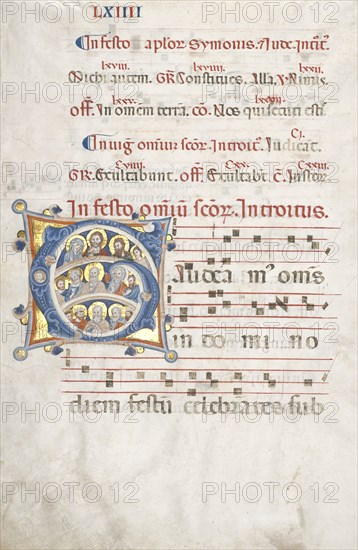 LXIIII
In festo aplor Symonis. 7 Jude. Introit.
lxviii. lxviii. lxxii.
Michi autem. GR. Constitues. Alla. V. Nimis
lxxv.
Off. In omnem terra. co. Uos qui secuti esti
In uig omnium scor. Introit. Judicat.
Ci.
Cviii. Cxv. Cxxiii.
GR. Exultabunt. Off. Exultabt C. Iustor
In festo omium scor. Introitus.
Audea m' omns
in do mi no
diem festu celebrantes sub
PHOTO 12